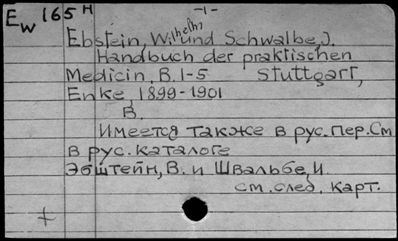 Ew 165 H -1-
Ebstein, Wilhelm und Schwalbe, J.
Handbuch der praktischen
Medicin, B. 1-5 Stuttgart,
Enke, 1899-1901
B.
Имеется также в рус. пер. См
в рус. каталоге
Эбштейн, В. и Швальбе, И.
см. след. карт.
+